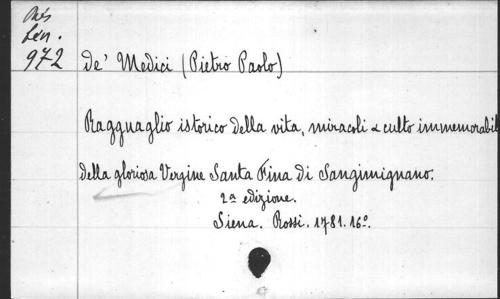 Rés
Lén.
972
de' Medici (Pietro Paolo)
Ragguaglio istorico della vita, miracoli & culto immemorabil
della gloriosa Vergine Santa Fina di Sangimignano.
2a edizione.
Siena. Rossi. 1781. 16º.